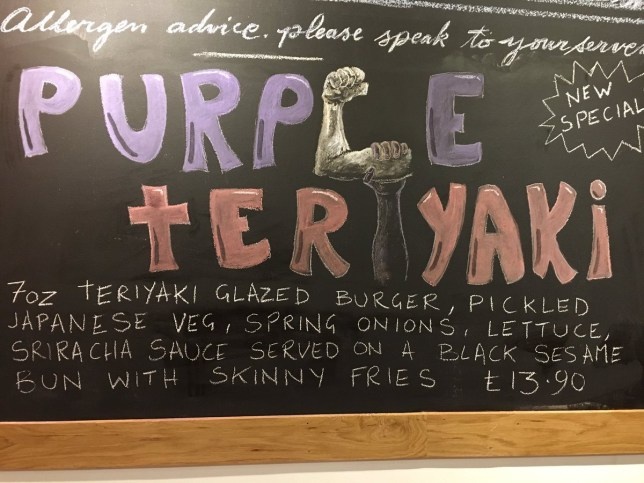 Allergen advice. please speak to your server
PURPLE
TERIYAKI
NEW
SPECIAL
7OZ TERIYAKI GLAZED BURGER, PICKLED
JAPANESE VEG, SPRING ONIONS, LETTUCE,
SRIRACHA SAUCE SERVED ON A BLACK SESAME
BUN WITH SKINNY FRIES £13.90